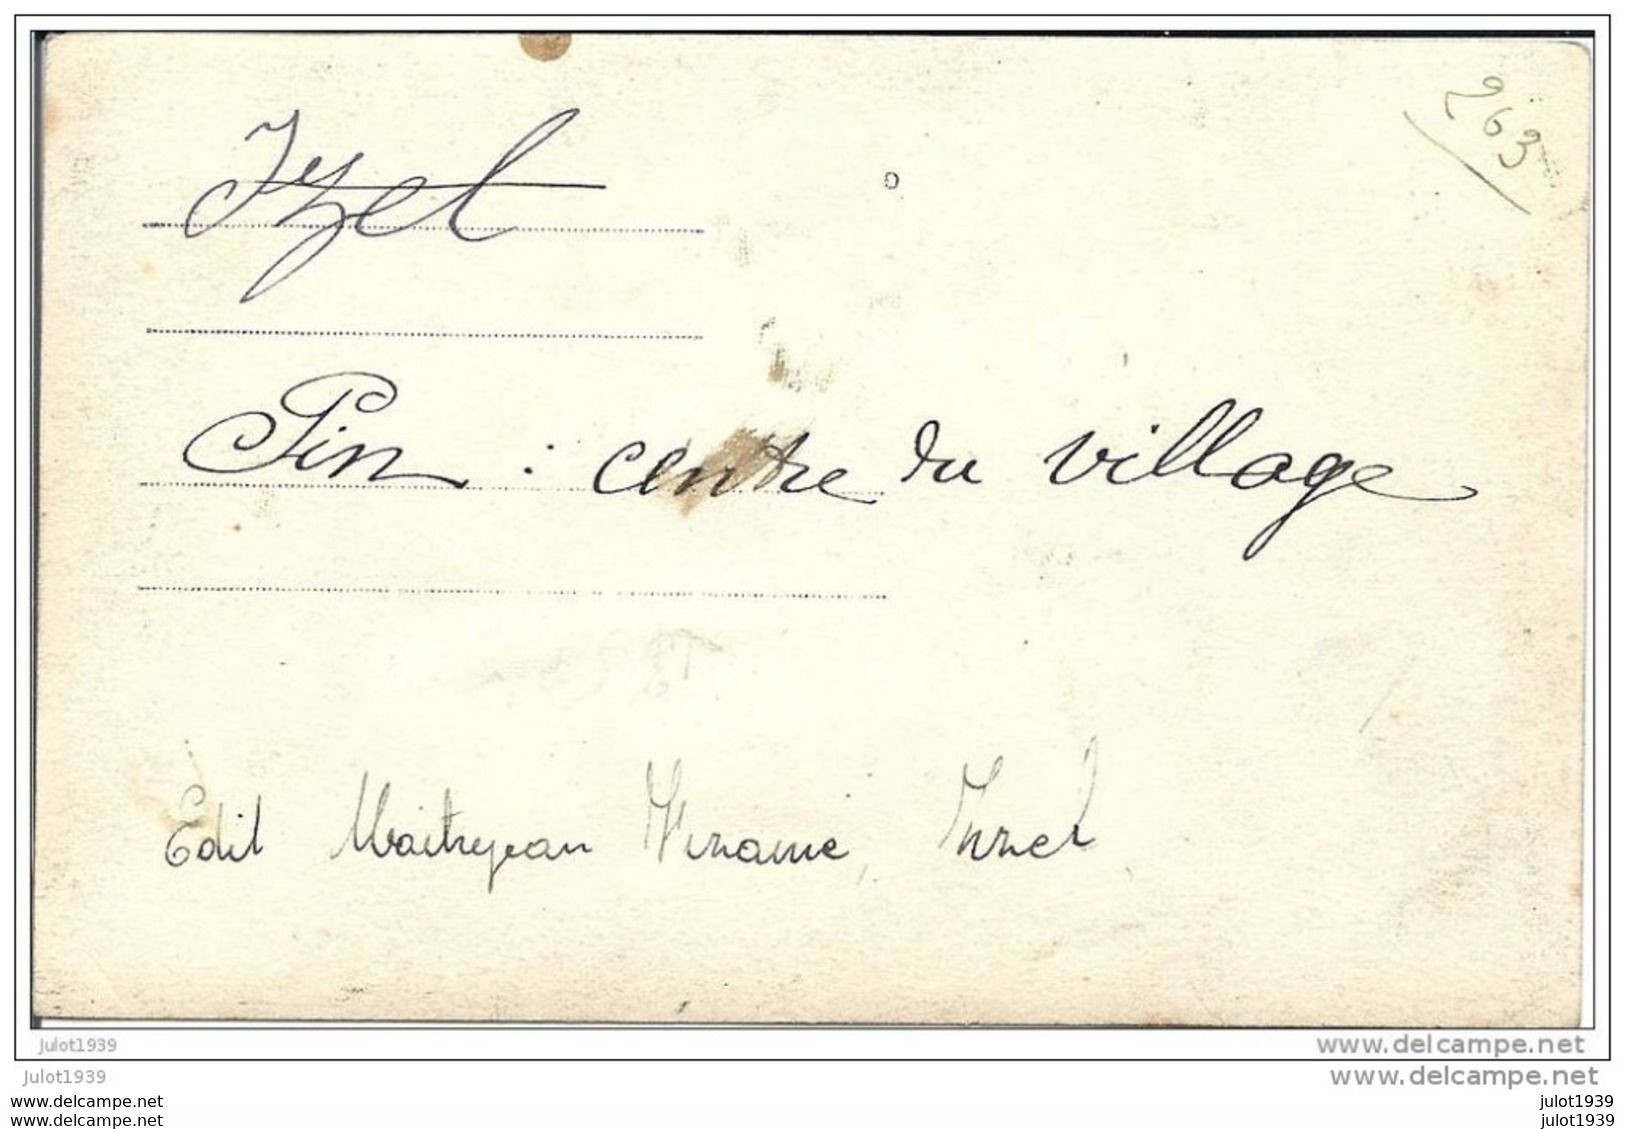 Izel
263
Pin : centre du village
Edit Maitrejean
julot1939
www.delcampe.net
julot1939
www.delcampe.net
www.delcampe.net
julot1939
www.delcampe.net
julot1939